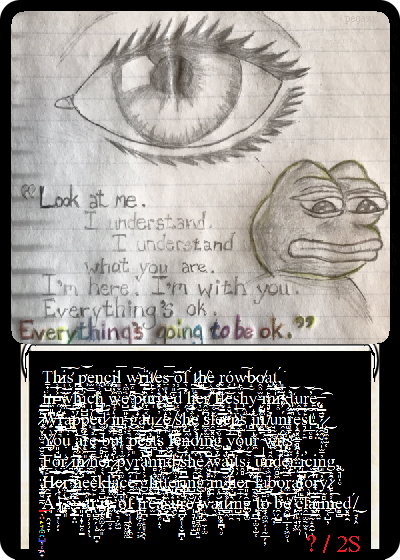 pegasi
“Look at me.
I understand.
I understand
what you are.
I'm here. I'm with you.
Everything's ok.
Everything's going to be ok.”
This pencil writes of the rowboat,
in which we purged her fleshy mixture.
Wrapped in gauze she sleeps in unrest,
You are but pests tending your
For in her pyramid she waits, under icing,
Her necklace glittering in her laboratory,
A of treasure waiting to be claimed.
? / 2S